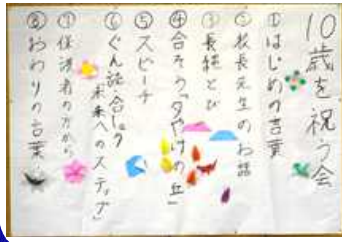 10歳を祝う会
①はじめの言葉
②校長先生のお話
③長縄とび
④合そう「夕やけの丘」
⑤スピーチ
⑥ぐん読・合しょう
未来へのステップ」
⑦保護者の方から
⑧おわりの言葉